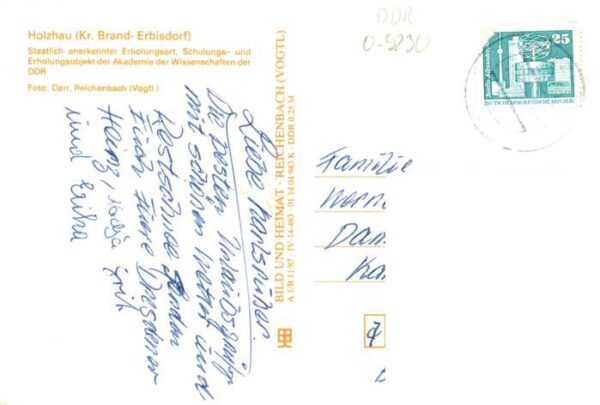 Holzhau (Kr. Brand-Erbisdorf)
Staatlich anerkannter Erholungsort, Schulungs- und
Erholungsobjekt der Akademie der Wissenschaften der
DDR
Foto: Darr, Reichenbach (Vogtl.)
Liebe
Die besten Urlaubsgrüße
mit schönem Wetter und
Restschnee senden
Euch Eure Dresdner
Heinz, Nadja
und Erika
BILD UND HEIMAT · REICHENBACH (VOGTL)
A 1/B 11/87 · IV-14-483 · 01 14 04 943 K · DDR 0,25 M
DDR
0-9230
25
DEUTSCHE DEMOKRATISCHE REPUBLIK
Familie